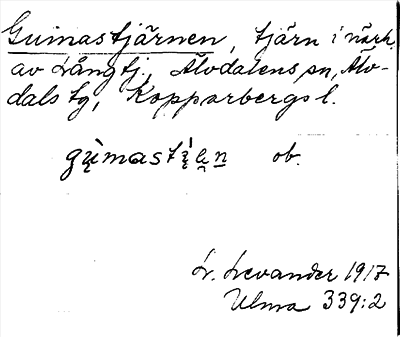 Guimastjärnen, tjärn i närh.
av Långtj., Älvdalens sn, Älv-
dals tg, Kopparbergs l.
gųi̇̀mast ob.
L. Levander 1917
Ulma 339:2